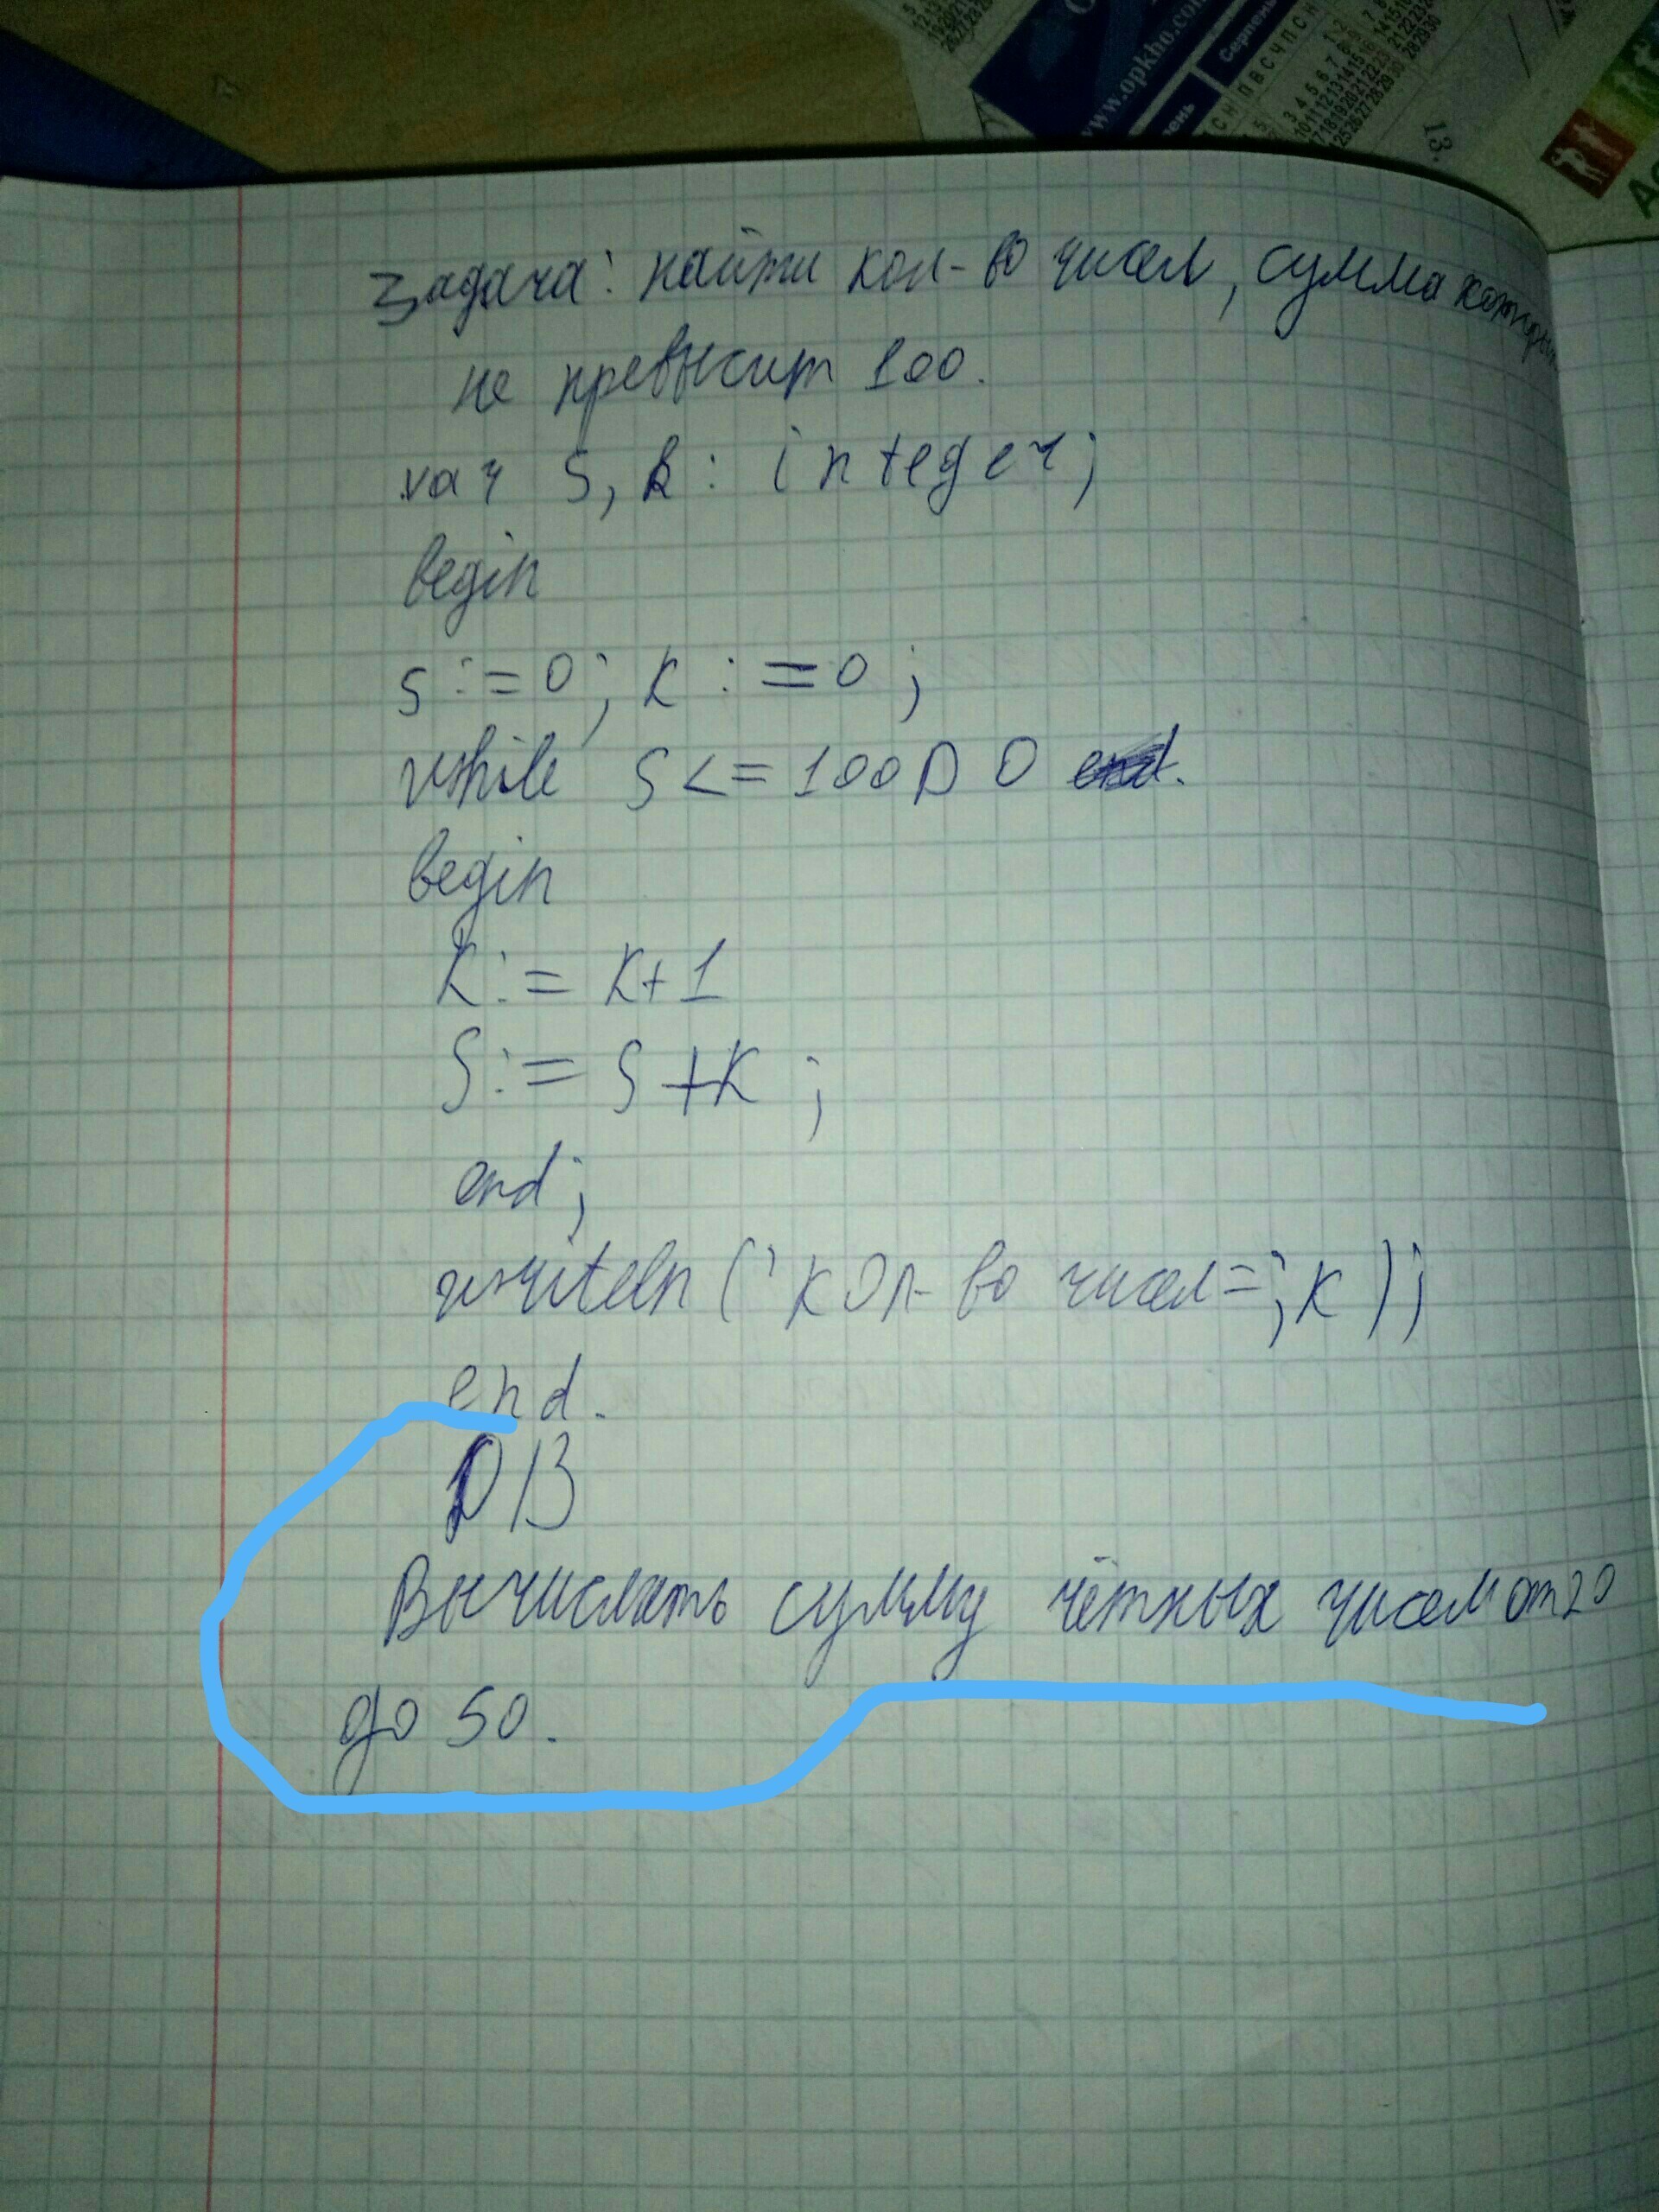 www.opkho.com
Серпень
13.
Задача: найти кол-во чисел, сумма которых
не превысит 100.
var s, k: integer;
begin
s:=0; k:=0;
while s<=100 DO
begin
k:= k+1
S:= S+k;
end;
writeln('кол-во чисел=', k);
end.
D/З
Вычислить сумму чётных чисел от 20
до 50.